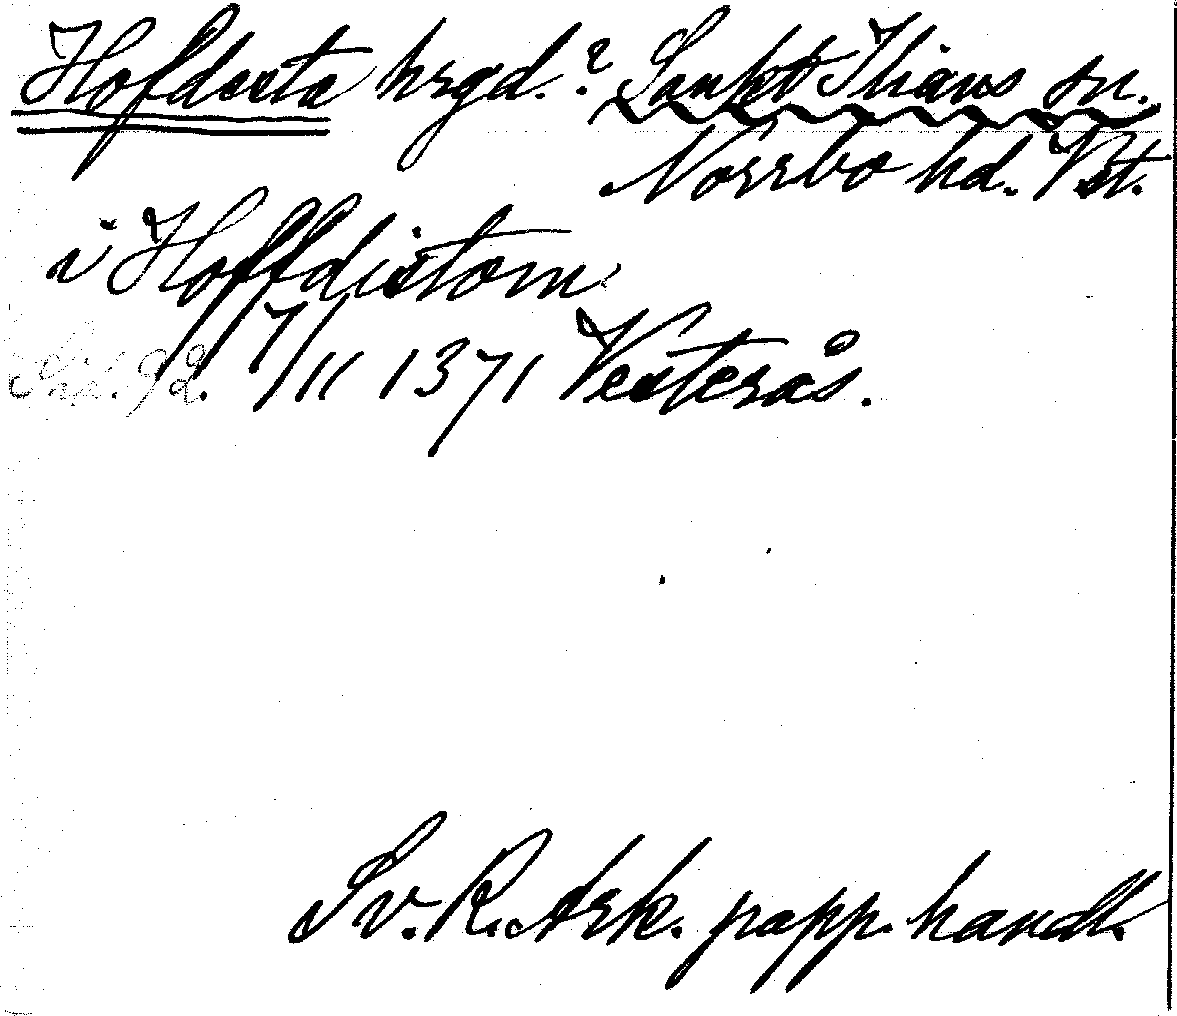 Hofdesta hrgd.? Sankt Ilians sn.
Norrbo hd. Vst.
i Hoffdistom
Sid. 92. 17/11 1371 Vesterås.
Sv. R. Ark. papp. handl.